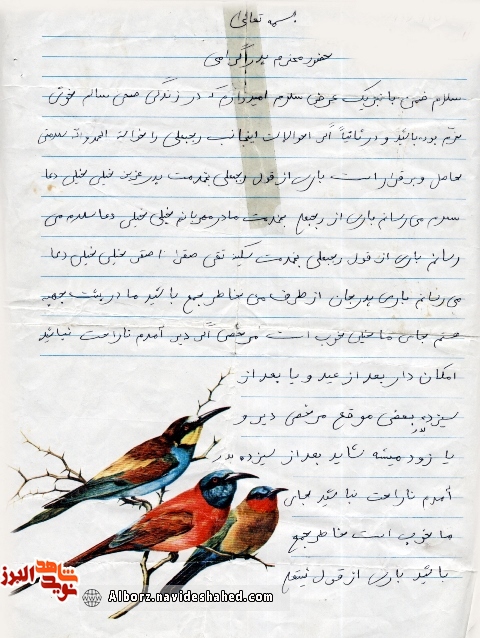 بسمه تعالی
حضور محترم پدر گرامی
سلام ضمن با تبریک عرض سلام امیدوارم که در زندگی صحی سالم خوش
خرم بوده باشید و در ثانیاً اگر احوالات اینجانب رجبعلی را بخواهید الحمدالله سلامتی
حاصل و برقرار است باری از قول رجبعلی بخدمت پدر عزیزم خیلی خیلی دعا
سلام می‌رسانم باری از رجبعلی بخدمت مادر مهربانم خیلی خیلی دعا سلام می
رسانم باری از قول رجبعلی بخدمت سکینه تقی صغرا اصغر خیلی خیلی دعا
می‌رسانم باری پدرجان از طرف من بخاطر جمع باشید ما در پشت جبهه
هستم جای ما خیلی خوب است مرخصی اگر دیر آمدم ناراحت نباشید
امکان دار بعد از عید و یا بعد از
سیزده بدر بعضی موقع مرخصی دیر و
یا زود میشه شاید بعد از سیزده بدر
آمدم ناراحت نباشید جای
ما خوب است بخاطر جمع
باشید باری از قول
شاهد
نوید
البرز
Alborz.navideshahed.com